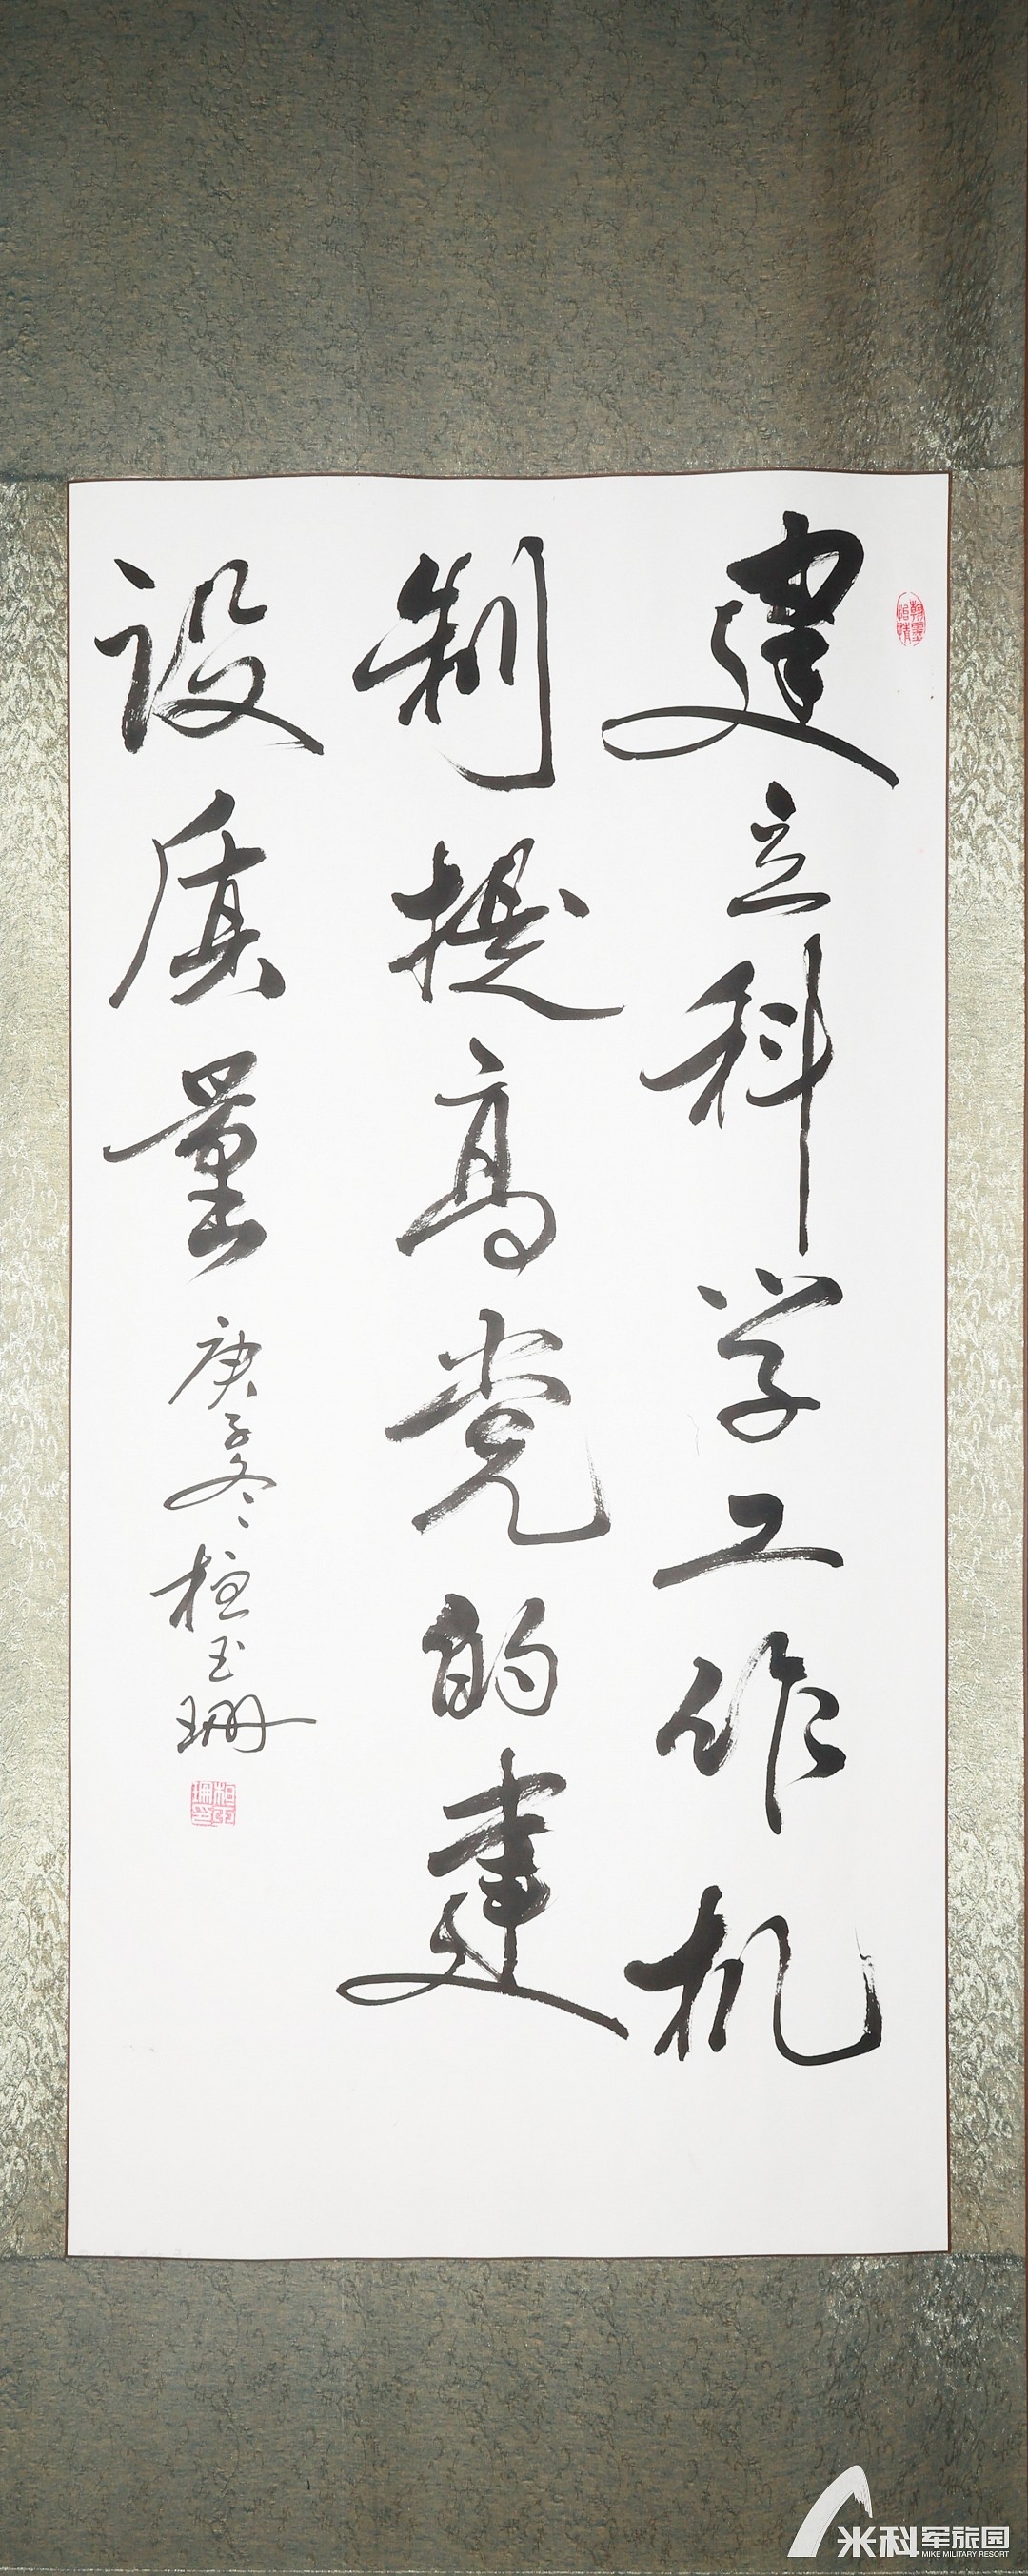 建立科学工作机
制提高党的建
设质量
庚子冬 桓玉珊
米科军旅园
MIKE MILITARY RESORT